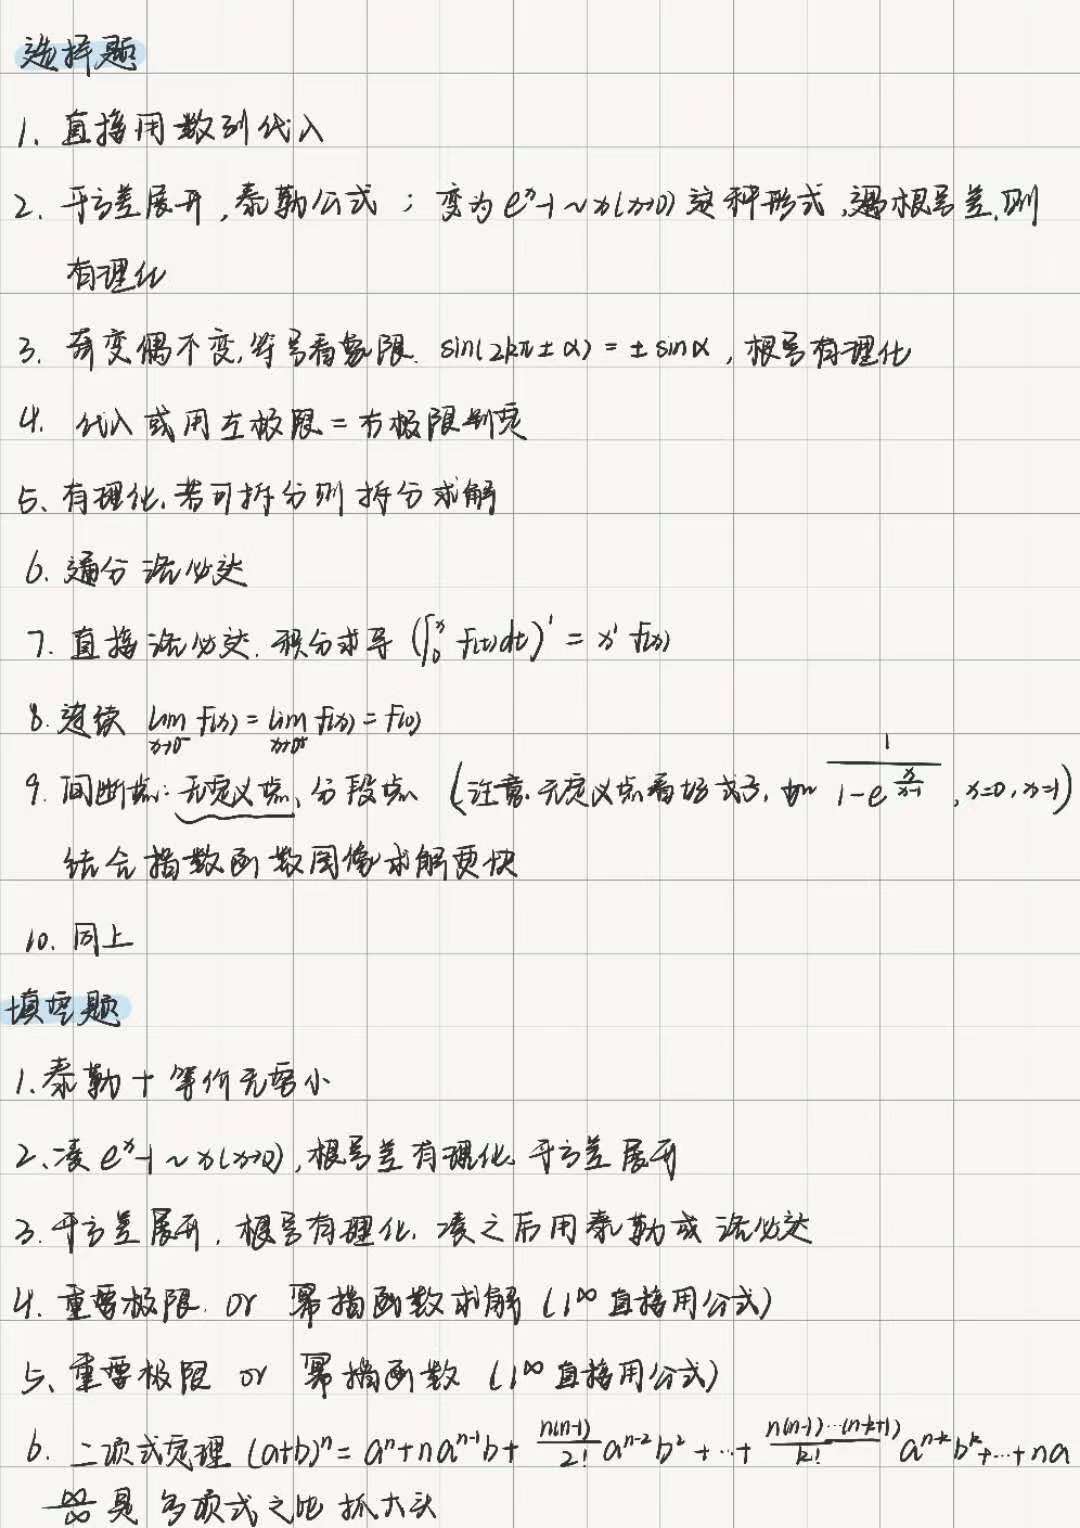 选择题
1. 直接用数列代入
2. 平方差展开,泰勒公式;变为 e^x-1~x(x→0) 这种形式,遇根号差,则
有理化
3. 奇变偶不变,符号看象限. sin(2kπ±α)=±sinα,根号有理化
4. 代入或用左极限=右极限判定
5、有理化,若可拆分则拆分求解
6. 通分 洛必达
7. 直接洛必达. 积分求导 (∫_0^x f(t)dt)' = x' f(x)
8. 连续 lim_{x→0^-} f(x) = lim_{x→0^+} f(x) = f(0)
9. 间断点:无定义点、分段点 (注意.无定义点看 式子,如 1/(1-e^{x/(x-1)}),x=0,x=1)
结合指数函数图像求解更快
10. 同上
填空题
1. 泰勒+等价无穷小
2、凑 e^x-1~x(x→0),根号差有理化 平方差展开
3. 平方差展开,根号有理化,凑之后用泰勒或洛必达
4. 重要极限 or 幂指函数求解 (1^∞ 直接用公式)
5、重要极限 or 幂指函数 (1^∞ 直接用公式)
6. 二项式定理 (a+b)^n = a^n+na^{n-1}b+ n(n-1)/2! a^{n-2}b^2 +…+ n(n-1)…(n-k+1)/k! a^{n-k}b^k+…+na
∞/∞ 是 多项式之比 抓大头